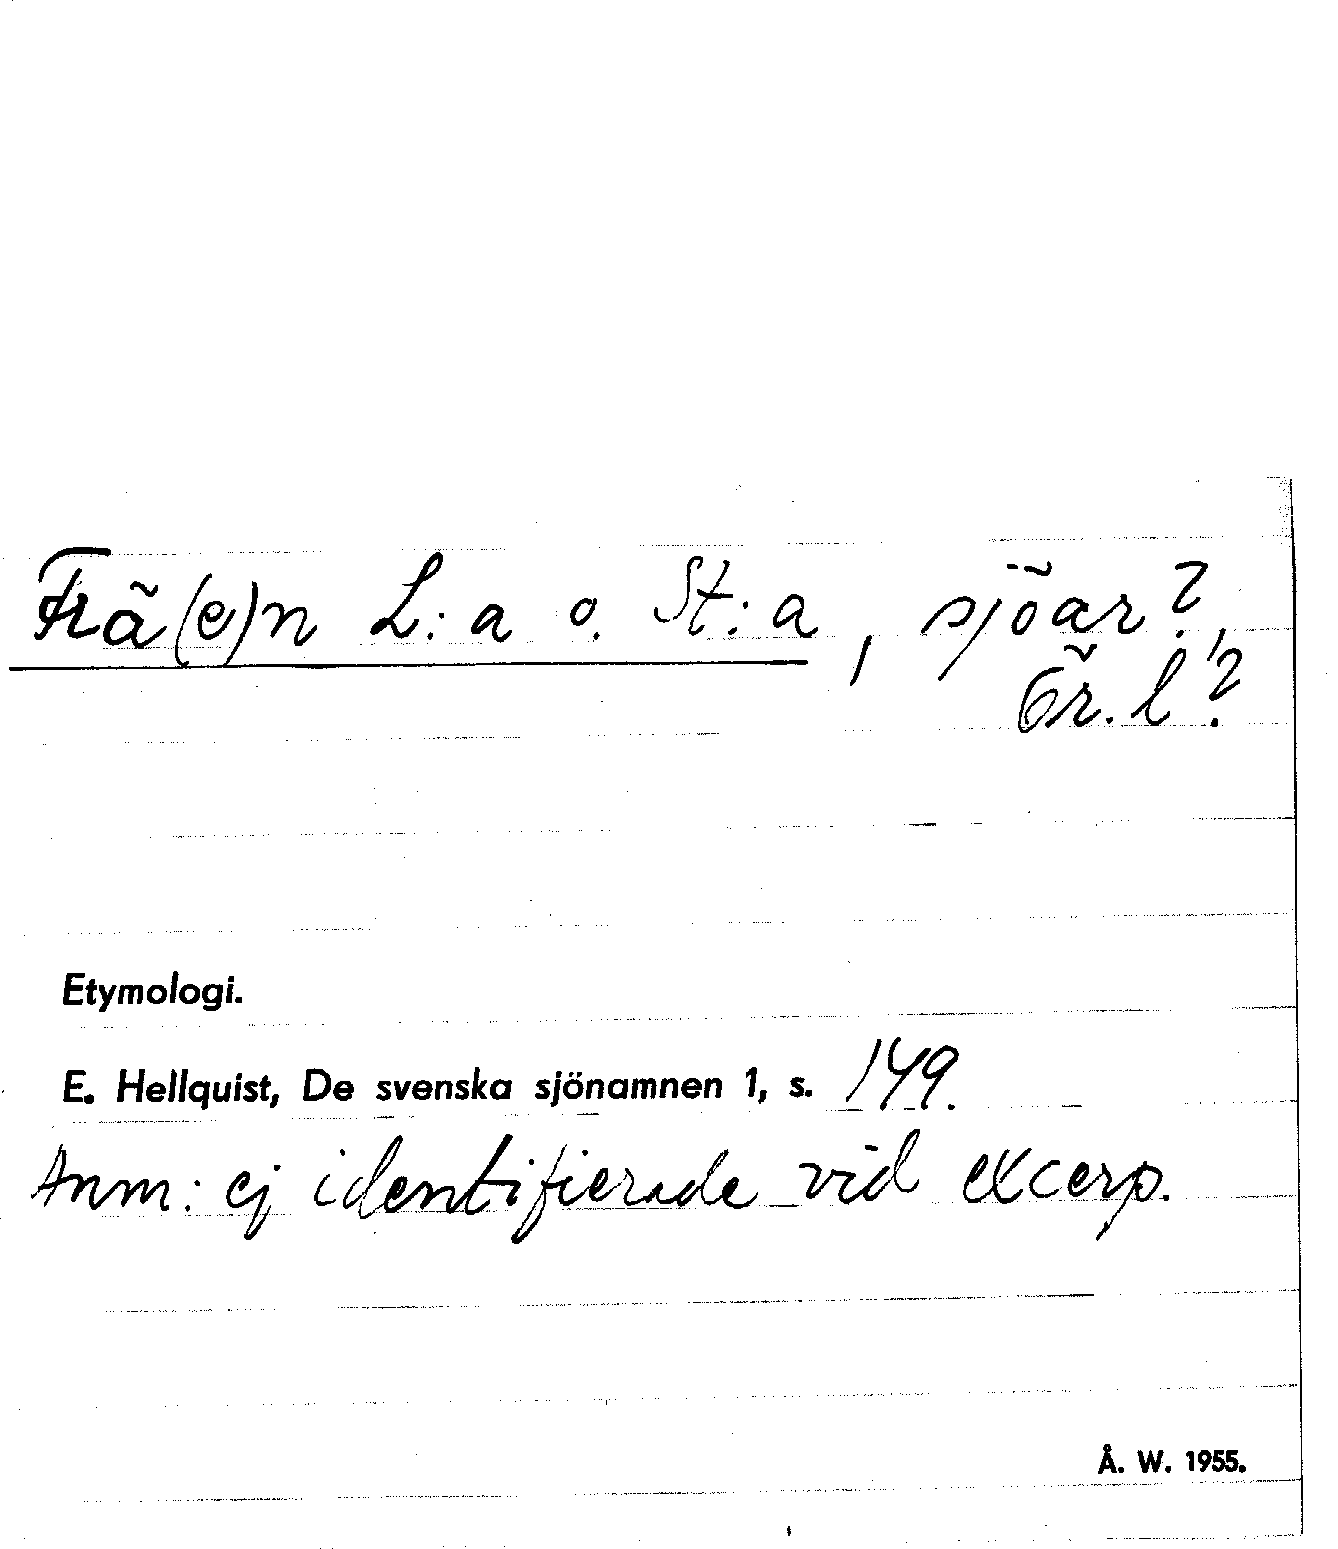 Frä(e)n L:a o. St:a, sjöar?,
Ör. l?
Etymologi.
E. Hellquist, De svenska sjönamnen 1, s. 149.
Anm: ej identifierade vid excerp.
Å. W. 1955.